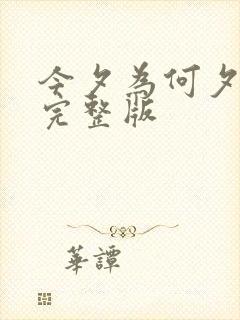 今夕為何夕
完整版
華譚